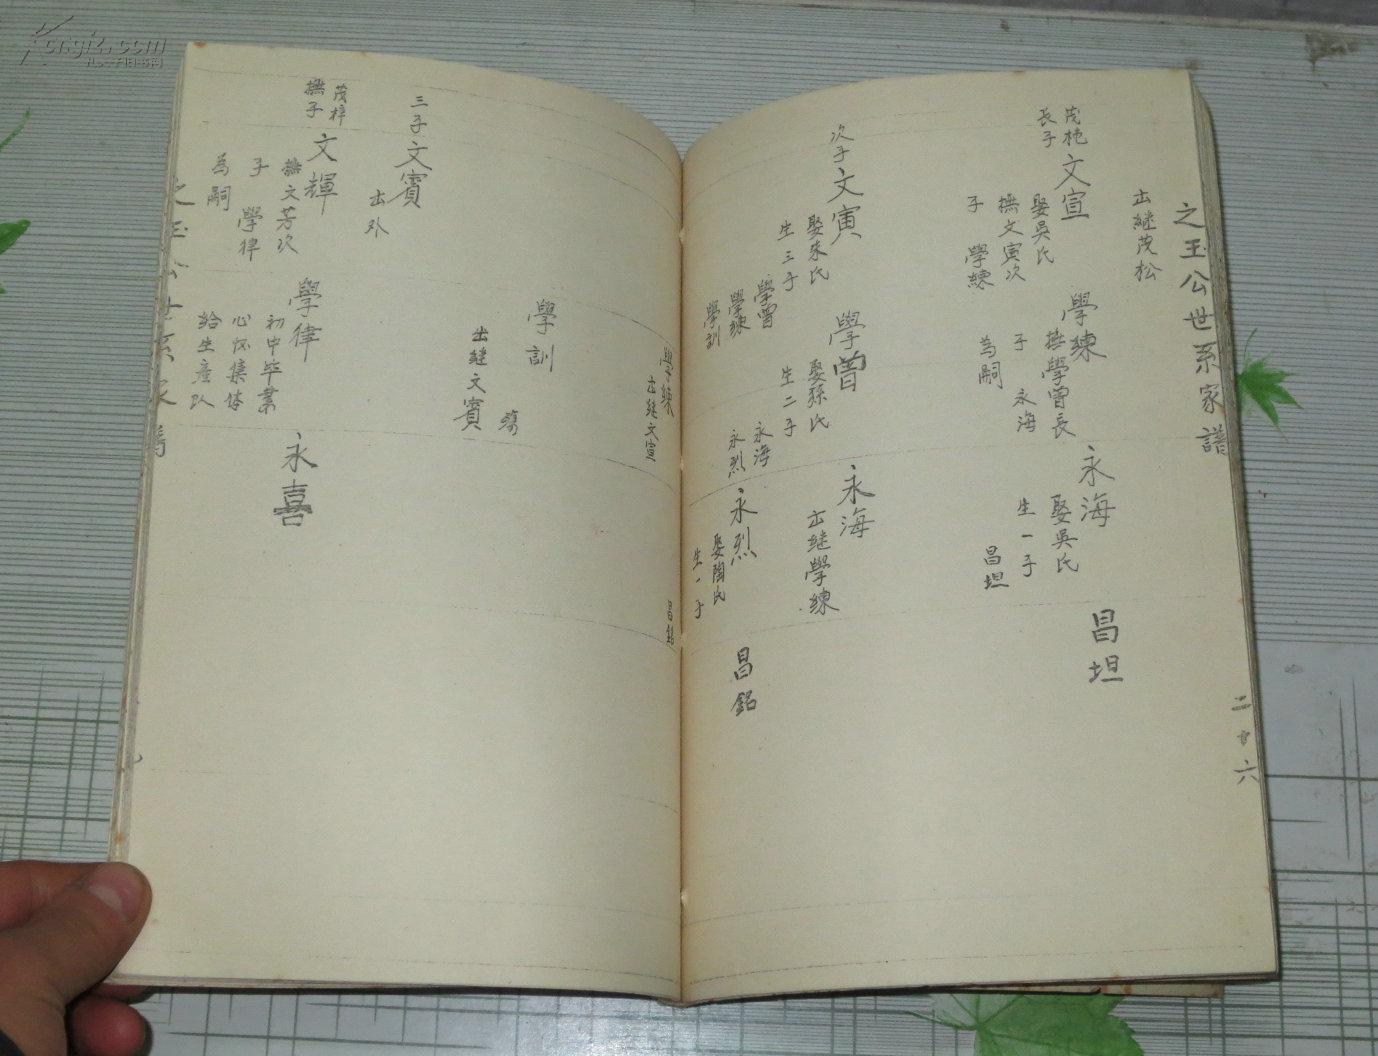 之玉公世系家譜
二十六
出繼茂松
茂桅
長子
文宣
娶吳氏
撫文寅次
子 學練
學練
撫學曾長
子 永海
為嗣
永海
娶吳氏
生一子
昌坦
昌坦
次子
文寅
娶朱氏
生三子
學曾
學練
學訓
學曾
娶孫氏
生二子
永海
永烈
永海
出继學練
永烈
娶陶氏
生一子
昌銘
學練
出继文宣
昌銘
學訓
殤
出繼文賓
三子
文賓
出外
茂梓
撫子
文輝
撫文芳次
子 學律
為嗣
學律
初中毕業
心怀集体
给生產队
永喜
之玉公世系家譜